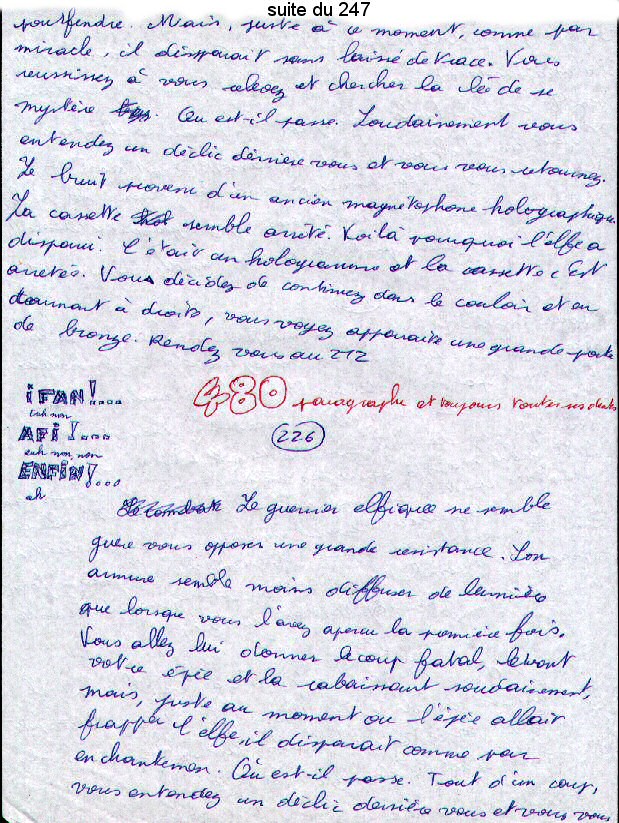 suite du 247
pourfendre. Mais, juste à ce moment, comme par
miracle, il disparait sans laissé de trace. Vous
reussissez à vous relevez et chercher la clé de se
mystère. Ou est-il passe. Soudainement vous
entendez un déclic dérriere vous et vous vous retournez.
Le bruit provens d'un ancien magnétophone holographique.
La cassette semble arrêté. Voilà pourquoi l'elfe a
disparu. C'était un hologramme et la cassette c'est
arretée. Vous décidez de continuez dans le couloir et en
tournant à droite, vous voyez apparaitre une grande porte
de bronze. Rendez vous au 212
480 paragraphe et toujours toutes ses dents
iFAN!....
euh non
AFi!....
euh non, non
ENFIN!...
ah
226
Le guerrier elfique ne semble
guere vous opposer une grande resistance. Son
armure semble moins diffuser de lumière
que lorsque vous l'avez aperçu la première fois.
Vous allez lui donner le coup fatal, levant
votre épée et la rabaissant soudainement,
mais, juste au moment ou l'épée allait
frapper l'elfe, il disparait comme par
enchantemen. Où est-il passe. Tout d'un coup,
vous entendez un déclic derrière vous et vous vous